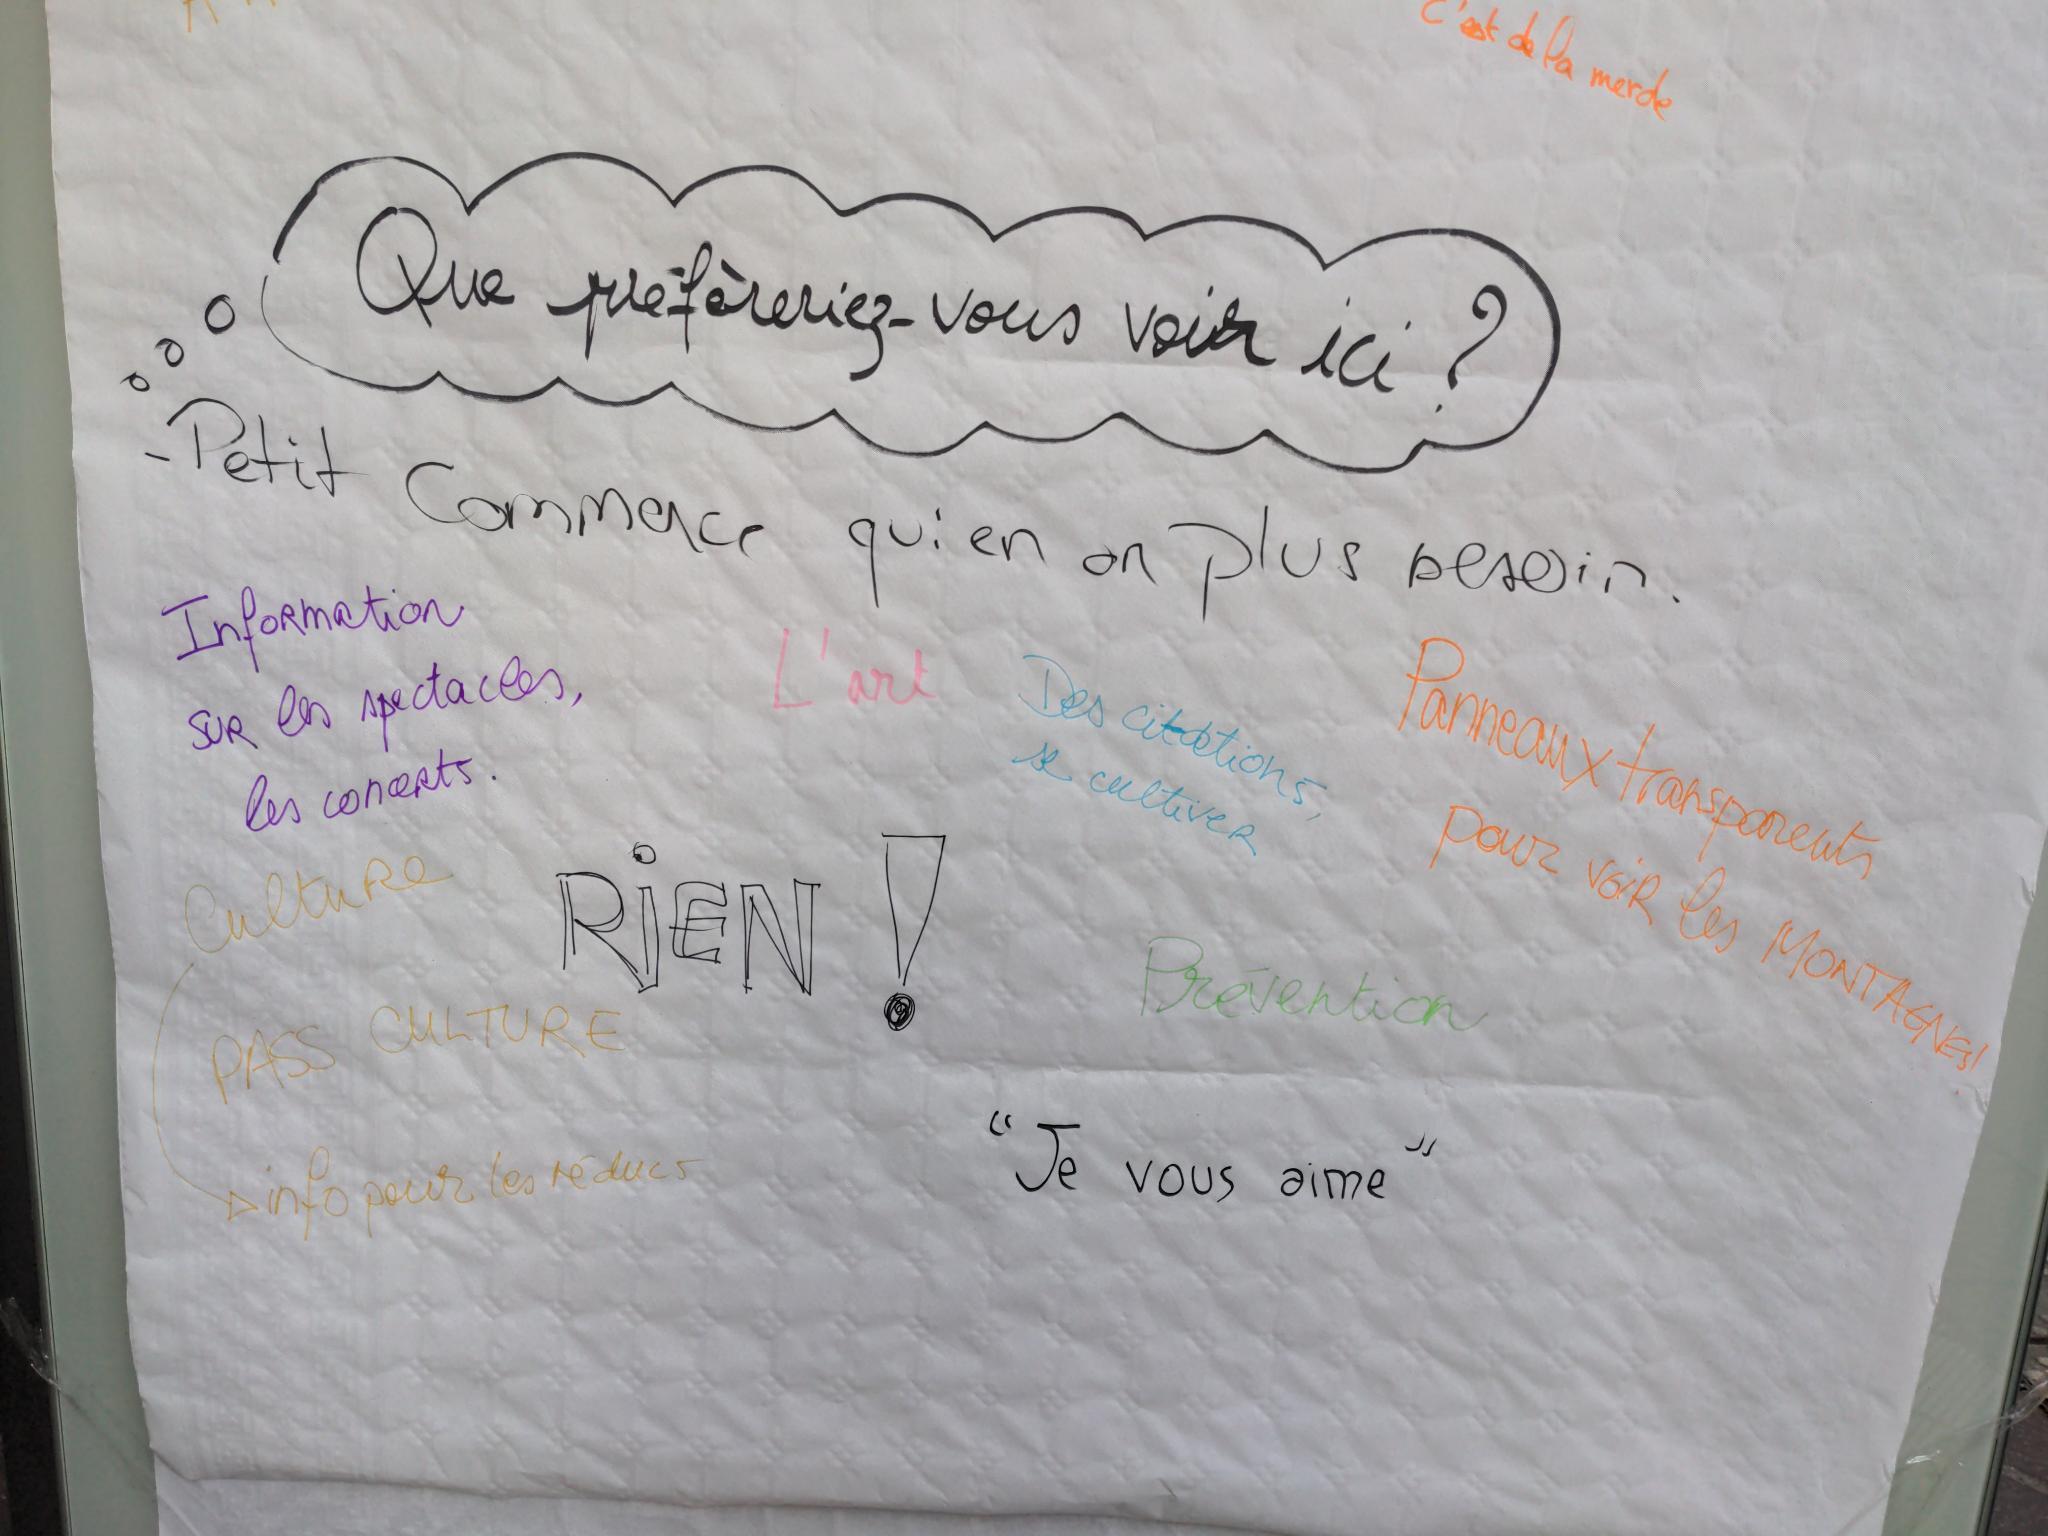 C'est de la merde
Que préfèreriez-vous voir ici ?
-Petit Commerce qui en on plus besoin.
Information
sur les spectacles,
les concerts.
L'art
Des citations,
se cultiver
Panneaux transparents
pour voir les MONTAGNES!
Culture
RiEN !
Prévention
PASS CULTURE
info pour les réducs
"Je vous aime"